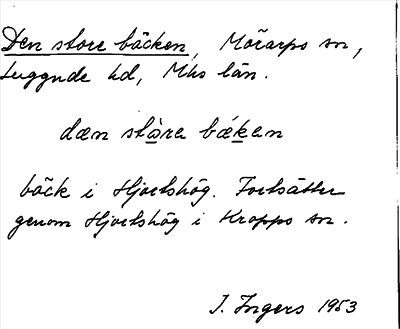 Den store bäcken, Mörarps sn,
Luggude hd, Mhs län.
dæn stòra bǽkan
bäck i Hjortshög. Fortsätter
genom Hjortshög i Kropps sn.
I. Ingers 1953